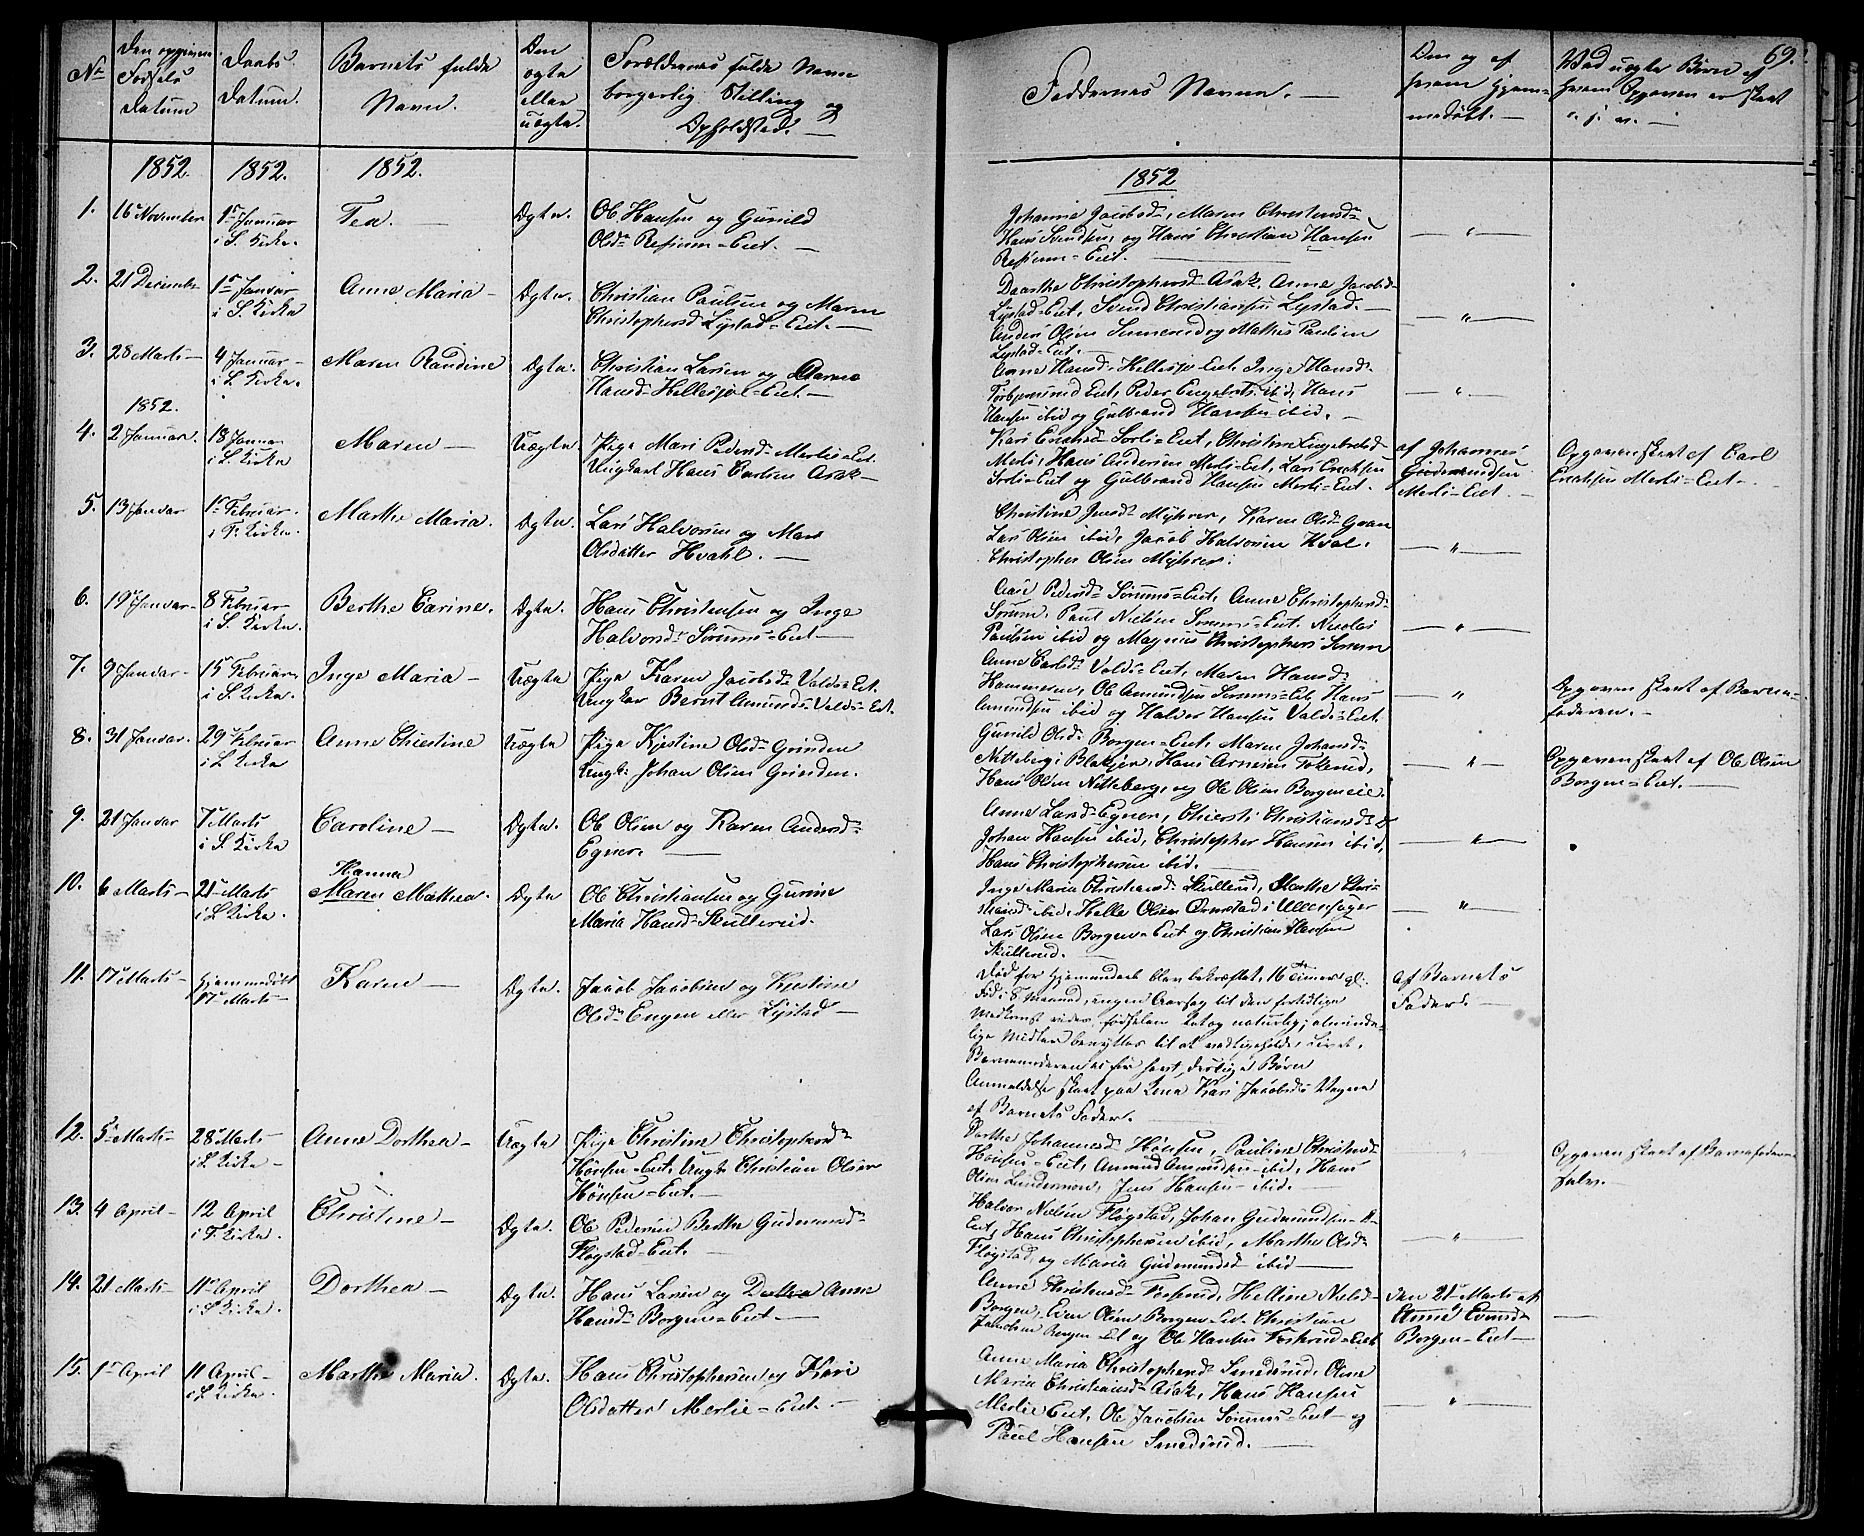 69.
No
Den opgivne Fødsels Datum
Daabs Datum.
Barnets fulde Navn.
Den ægte eller uægte.
Forældrenes fulde Navn borgerlig Stilling og Opholdsted. —
Faddernes Navne. —
Den og af hvem Hjem- medøbt. —
Ved uægte Børn af hvem Opgaven er skeet
1852. 1852. 1852. 1852
1. 16 November 1ste Januar i S. Kirke. Tea. — Ægte. Ole Hansen og Gunild
Olsd. Refsum-Eiet. —
Johanne Jacobsd., Maren Christensd.
Hans Svendsen, og Hans Christian Hansen
Refsum-Eiet. —
2. 21 December 1ste Januar i S. Kirke Anne Maria — Ægte. Christian Paulsen og Maren
Christophersd. Lystad-Eiet. —
Dorthe Christophersd. Asak, Anne Jacobsd.
Lystad-Eiet, Svend Christiansen Lystad.
Anders Olsen og Mathis Paulsen
Lystad-Eiet. —
3. 28 Marts — 4 Januar — i S. Kirke. Maren Randine Ægte. Christian Larsen og Maren
Hansd. Hellesjøl-Eiet. —
Anne Hansd. Hellesjø Eiet, Inge Hansd.
Eiet, Peder Engebrets. ibid, Hans
Hansen ibid og Gulbrand Hansen ibid. —
1852.
4. 2 Januar. 18 Januar i S. Kirke Maren — Uægte. Pige Mari Pedersd. Merli-Eiet.
Ungkarl Hans Carlsen Asak —
Kari Erichsd. Sorli-Eiet, Christine Engebretsd.
Merli, Hans Andersen Merli-Eiet, Lars Erichsen
Sorli-Eiet og Gulbrand Hansen Merli-Eiet.
af Johannes
Gudmundsen
Merli-Eiet.
Opgaven skeet af Carl
Erichsen Merli-Eiet.
5. 13 Januar 1ste Februar i F. Kirke. Marthe Maria. Ægte. Lars Halvorsen og Mari
Olsdatter Hvahl. —
Christine Jensd. Myhrer, Karen Olsd.
Lars Olsen ibid, Jacob Halvorsen Hval.
Christopher Olsen Myhrer.
6. 19 Januar — 8 Februar i S. Kirke. Berthe Carine. Ægte. Hans Christensen og Inge
Halvorsd. Sørums-Eiet —
Pedersd. Sørums-Eiet, Anne Christophersd.
Sørum, Paul Nielsen Sørums-Eiet. Nicolai
Paulsen ibid og Magnus Christophers. Sørum
7. 9 Januar — 15 Februar i S. Kirke. Inge Maria — Uægte Pige Karen Jacobsd. Valds-Eiet.
Ungkar Bernt Amunds. Valds-Eiet.
Anne Carlsd. Valds-Eiet, Maren Hansd.
Hammeren, Ole Amundsen Sørums-Eie, Hans
Amundsen ibid og Halvor Hansen Valds-Eiet.
Opgaven skeet af Barne-
faderen. —
8. 31 Januar. 29 Februar i S. Kirke Anne Christine Uægte Pige Kjestine Olsd. Grinden
Ungk. Johan Olsen Grinden.
Gunild Olsd. Borgen-Eiet, Maren Johansd.
Nitteberg i Blakjer, Hans Arnesen Tokerud,
Hans Olsen Nitteberg, og Ole Olsen Borgeneie.
Opgaven skeet af Ole Olsen
Borgen-Eiet. —
9. 21 Januar 7 Marts i S. Kirke Caroline — Ægte. Ole Olsen og Karen Andersd.
Egner. —
Anne Larsd. Egner, Chiersti Christiansd.
Johan Hansen ibid, Christopher Hansen ibid,
Hans Christophersen ibid. —
10. 6 Marts — 21 Marts i S. Kirke. Hanna
Maren Mathea. Ægte Ole Christiansen og Gurine
Maria Hansd. Skullerud.
Inge Maria Christensd. Skullerud, Marthe Chri-
stiansd. ibid, Helle Olsen Ormstad i Ullensager
Lars Olsen Borgen-Eiet og Christian Hansen
Skullerud.
11. 17 Marts — Hjemmedøbt 17 Marts — Karen — Ægte. Jacob Jacobsen og Kjestine
Olsd. Engen eller Lystad —
Død før Hjemmedaab blev bekræftet, 16 Timer gl.
Født 8 Maaned, ingen Aarsag til den fortidlige
Nedkomst vides, fødselen let og naturlig; alminde-
lige Midler benyttes til at vedligeholde Livet,
Barnemoderen før havt Børn
Anmeldelse skeet paa Lensm. Kari Jacobsd. Vegne
af Barnets Fader. —
af Barnets
Fader. —
12. 5 Marts — 28 Marts — i S. Kirke — Anne Dorthea — Uægte Pige Christine Christophersd.
Hønsen-Eiet, Ungk. Christian Olsen
Hønsen-Eiet. —
Dorthe Johannesd. Hønsen, Pauline Christensd.
Hønsen-Eiet, Amund Amundsen ibid, Hans
Olsen Lundermoen, Jens Hansen ibid. —
Opgaven skeet af Barnefaderen
selv. —
13. 4 April — 12 April i F. Kirke. Christine — Ægte. Ole Pedersen Berthe Gudmundsd.
Fløgstad-Eiet. —
Halvor Nielsen Fløgstad, Johan Gudmundsen
Eiet, Hans Christophersen ibid, Marthe Olsd.
Fløgstad, og Maria Gudmundsd. ibid —
14. 21 Marts — 11 April i S. Kirke. Dorthea — Ægte. Hans Larsen og Dorthea Anne
Hansd. Borgen-Eiet —
Anne Christensd. Fosserud, Helline Nielsd.
Borgen, Even Olsen Borgen-Eiet, Christian
Jacobsen Borgen-Eiet og Ole Hansen Eiet
Den 21 Marts af
Anne Evensd.
Borgen-Eiet —
15. 1ste April 11 April — i S. Kirke. Marthe Maria. Ægte. Hans Christophersen og Kari
Olsdatter Merlie-Eiet. —
Anne Maria Christophersd. Smedsrud, Oline
Maria Christiansd. Asak, Hans Hansen
Merlie Eiet, Ole Jacobsen Sørums-Eiet — og
Paul Hansen Smedsrud. —